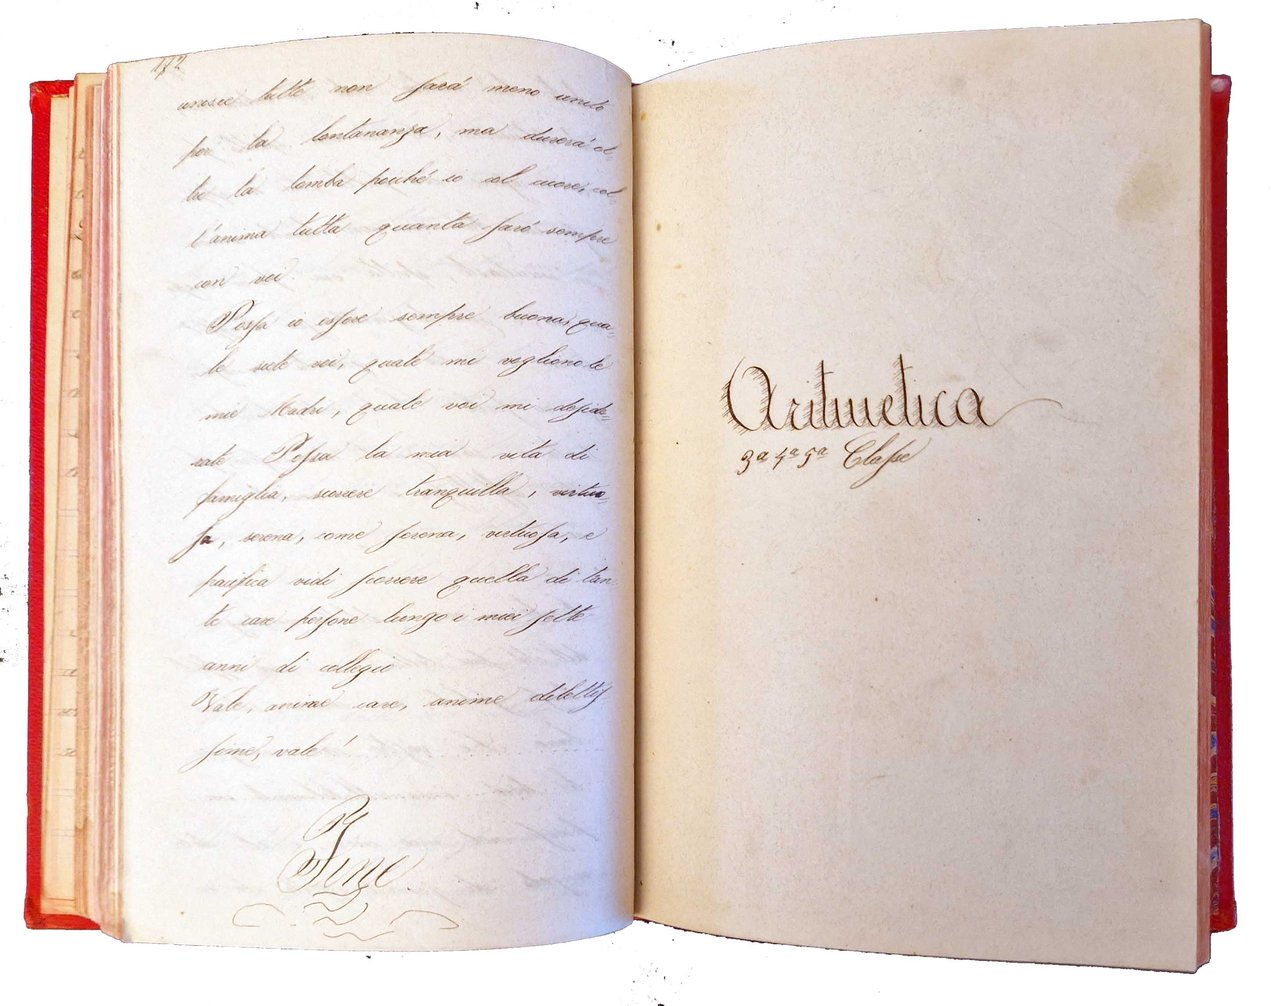 172
unisce tutte non sarà meno unito
per la lontananza, ma durerà ol-
tre la tomba poiché io col cuore, col
l'anima tutta quanta sarò sempre
con voi
Possa io essere sempre buona, qua-
le siete voi, quale mi vogliono le
mie Madri, quale voi mi deside-
rate Possa la mia vita di
famiglia, scorrere tranquilla, virtuo-
sa, serena, come serena, virtuosa, e
pacifica vidi scorrere quella di tan
te care persone lungo i miei sette
anni di collegio
Vale, anime care, anime dilettis
sime, vale!
Fine
Aritmetica
3ª 4ª 5ª Classe